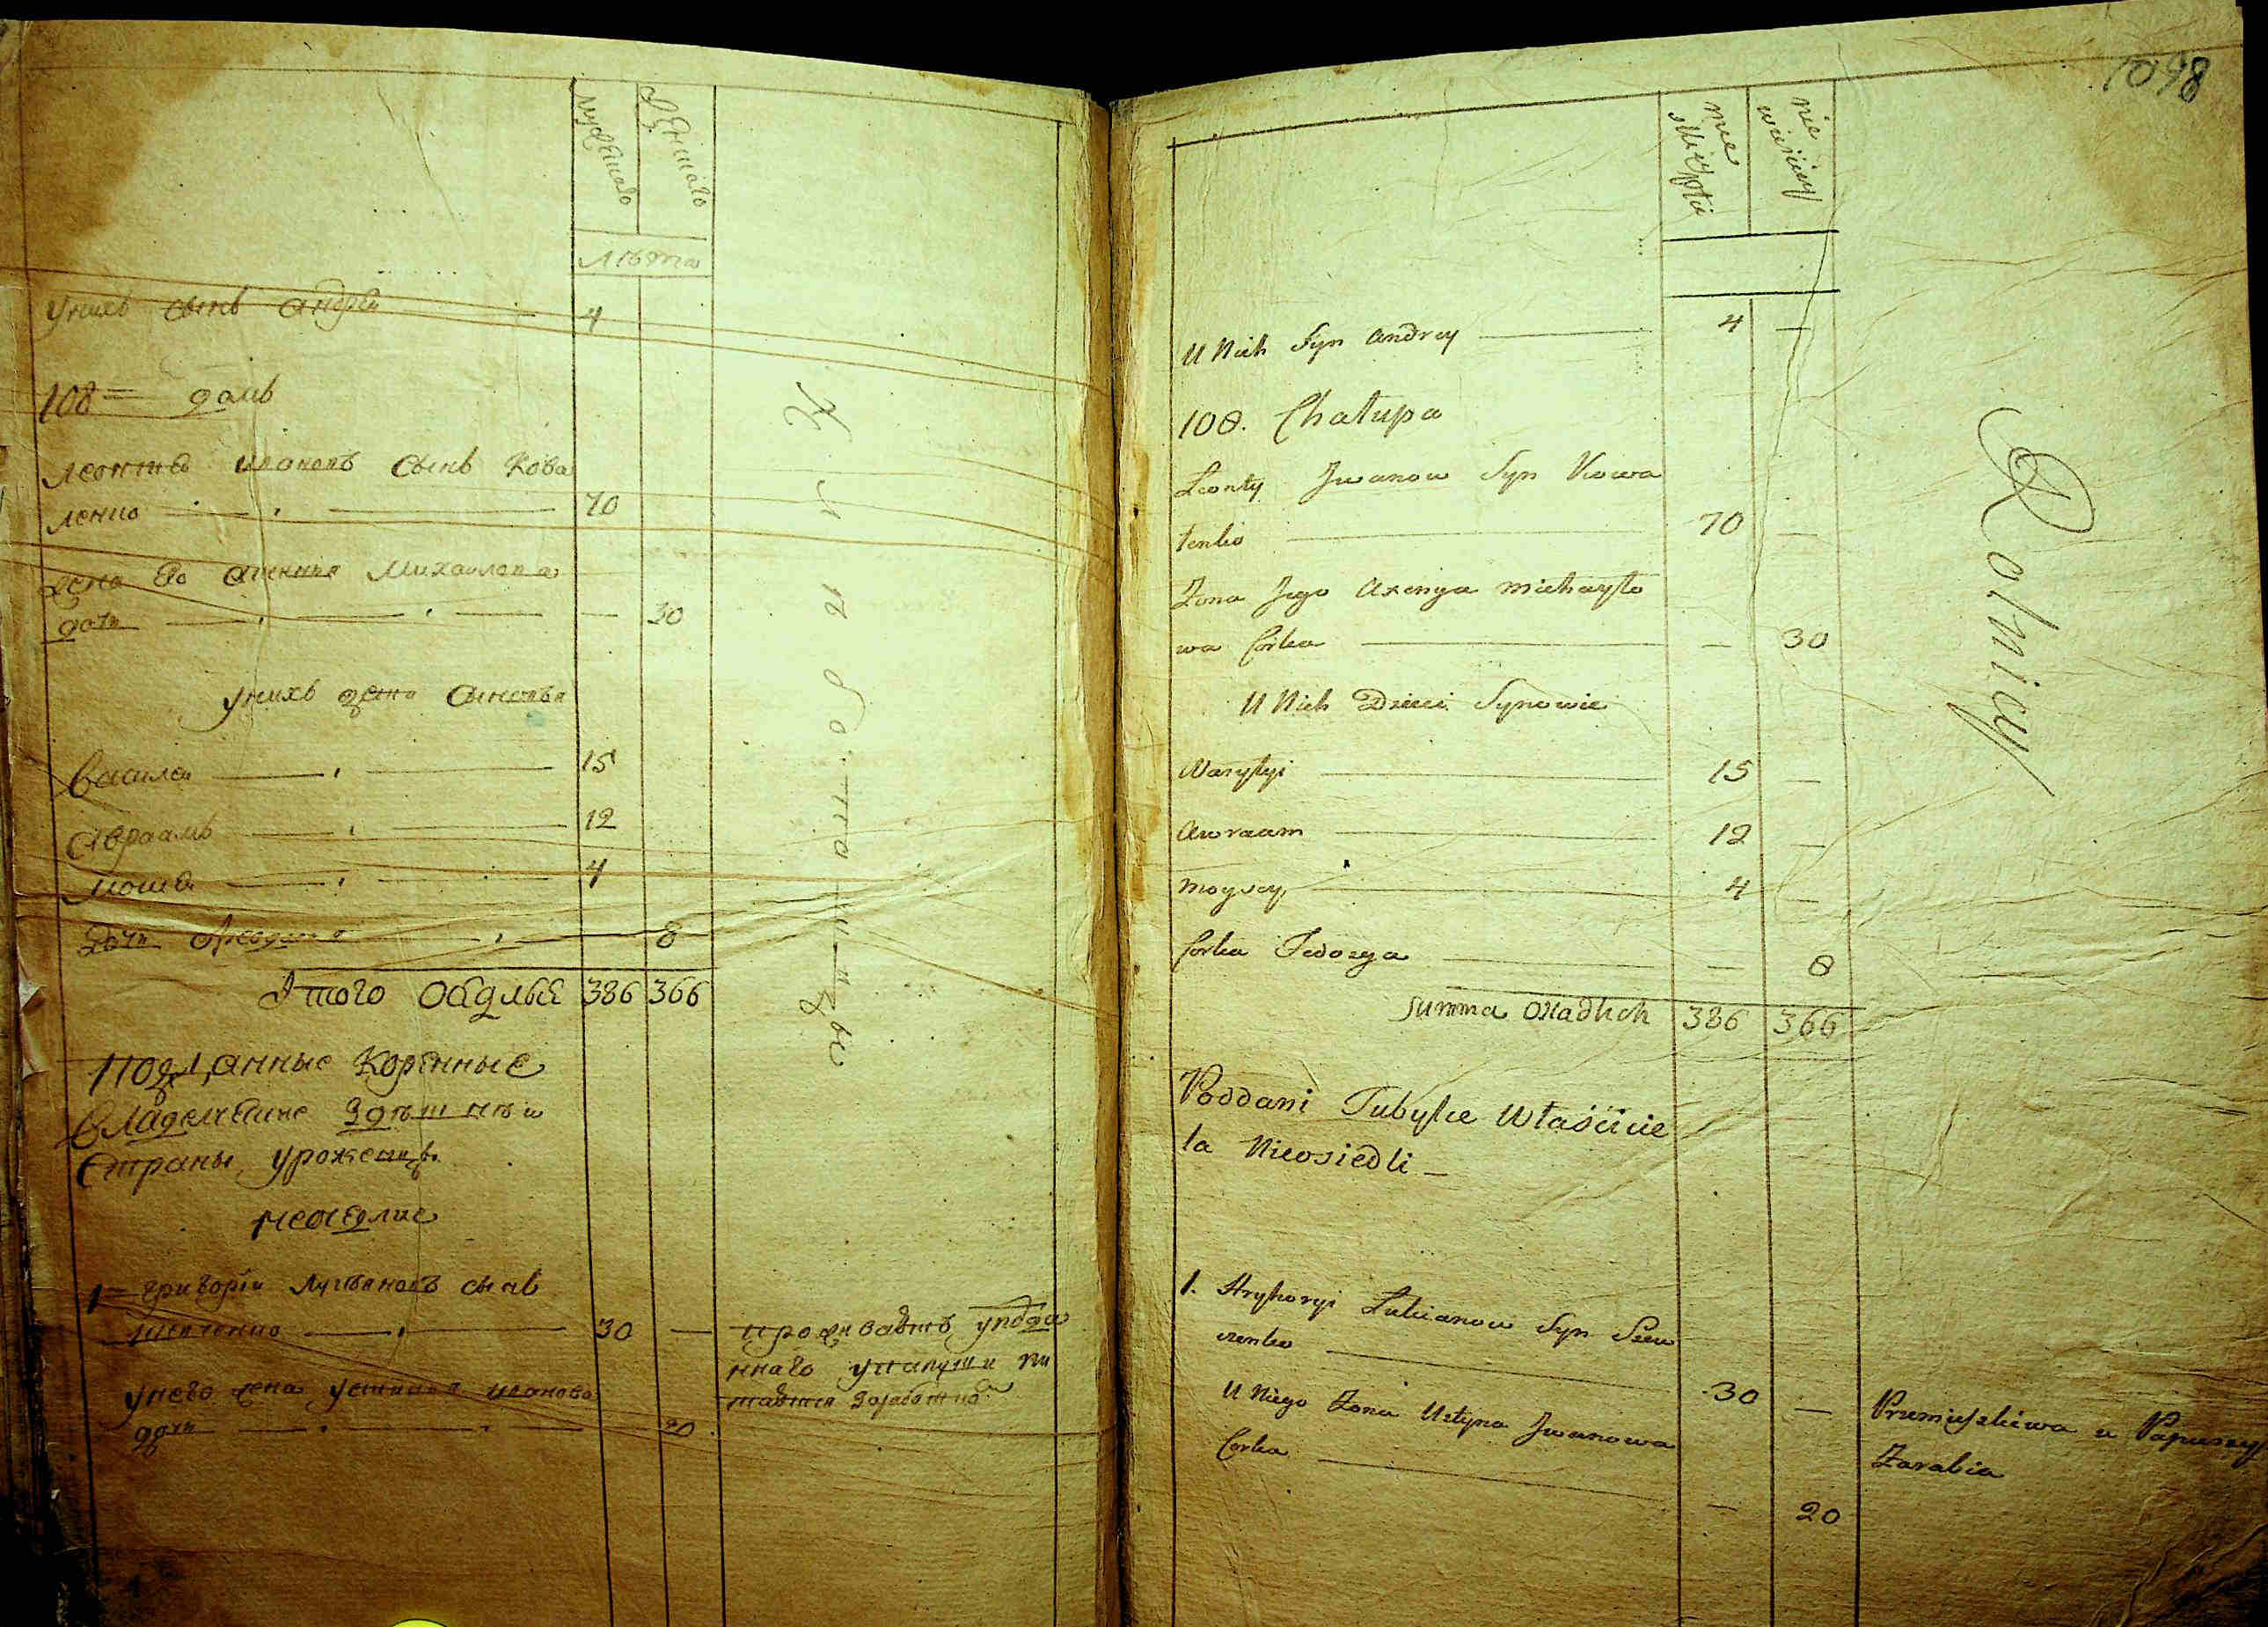 мужескаго
женскаго
лѣта
унихъ сынъ андрей 4
108 домъ
леонтей ивановъ сынъ Кова
ленко 70
жена Его Ксенья Михайлова
дочь 30
унихъ дети Сыновья
Василей 15
Авраамъ 12
мосей 4
Дочь Феодосья 8
Итого Оседлые 386 366
подданные Коренные
Владелческие Здѣшней
Страны урожен
неоседлые
1 григорій Лукьяновъ сынъ
30
унего жена устинья иванова
дочь 20
проживаетъ уподда
ннаго
Хлебопашцы
1098
męskiej
niewieściey
U Nich Syn Andrey 4 —
108. Chałupa
Leonty Jwanow Syn Kowa
lenko 70 —
Żona Jego Axenya Michayło
wa Corka — 30
U Nich Dzieci Synowie
Wasylyi 15 —
Awraam 12 —
Moysey 4 —
Corka Fedosya — 8
Summa Osiadłych 386 366
Poddani Tubylce Właściicie
la Nieosiedli
1. Hryhoryi Lukianow Syn Szew
czenko 30 —
U Niego Żona Ustyna Jwanowa
Corka — 20
Rolnicy
Przemieszkiwa u
Zarabia